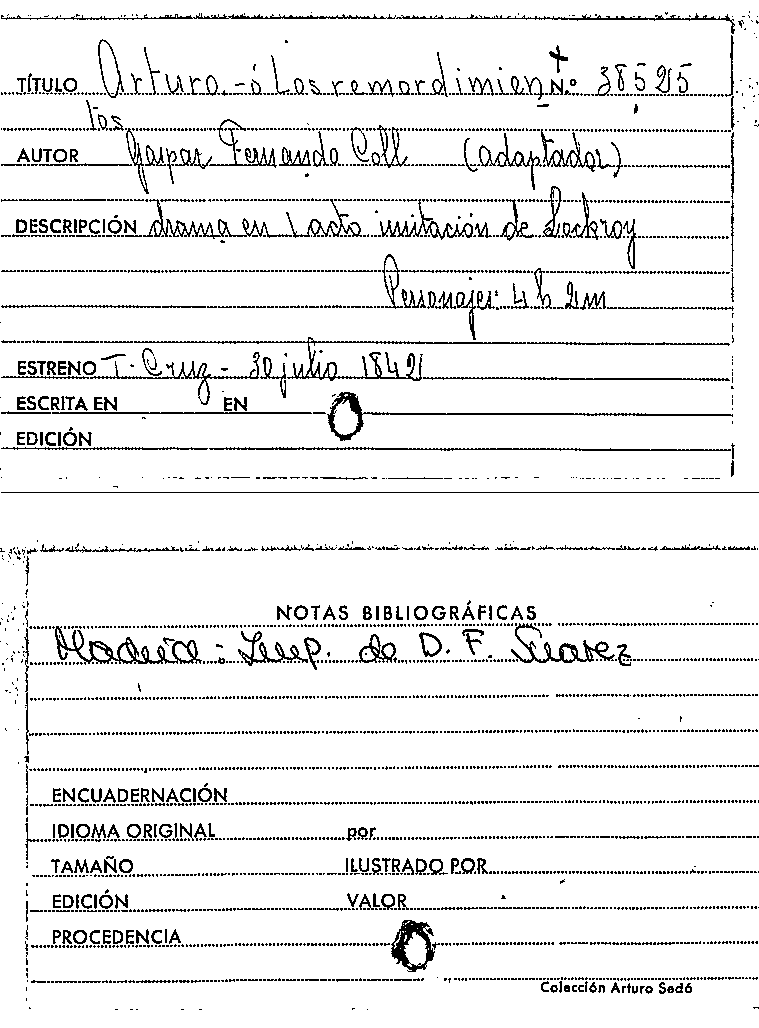 TÍTULO Arturo.-ó Los remordimien N.º 38525
tos
AUTOR Gaspar Fernando Coll (adaptador)
DESCRIPCIÓN drama en 1 acto imitación de Lockroy
Personajes: 4 h 2 m
ESTRENO T. Cruz - 30 julio 1842
ESCRITA EN EN
EDICIÓN
NOTAS BIBLIOGRÁFICAS
Madrid: Imp. de D. F. Suarez
ENCUADERNACIÓN
IDIOMA ORIGINAL por
TAMAÑO ILUSTRADO POR
EDICIÓN VALOR
PROCEDENCIA
Colección Arturo Sedó